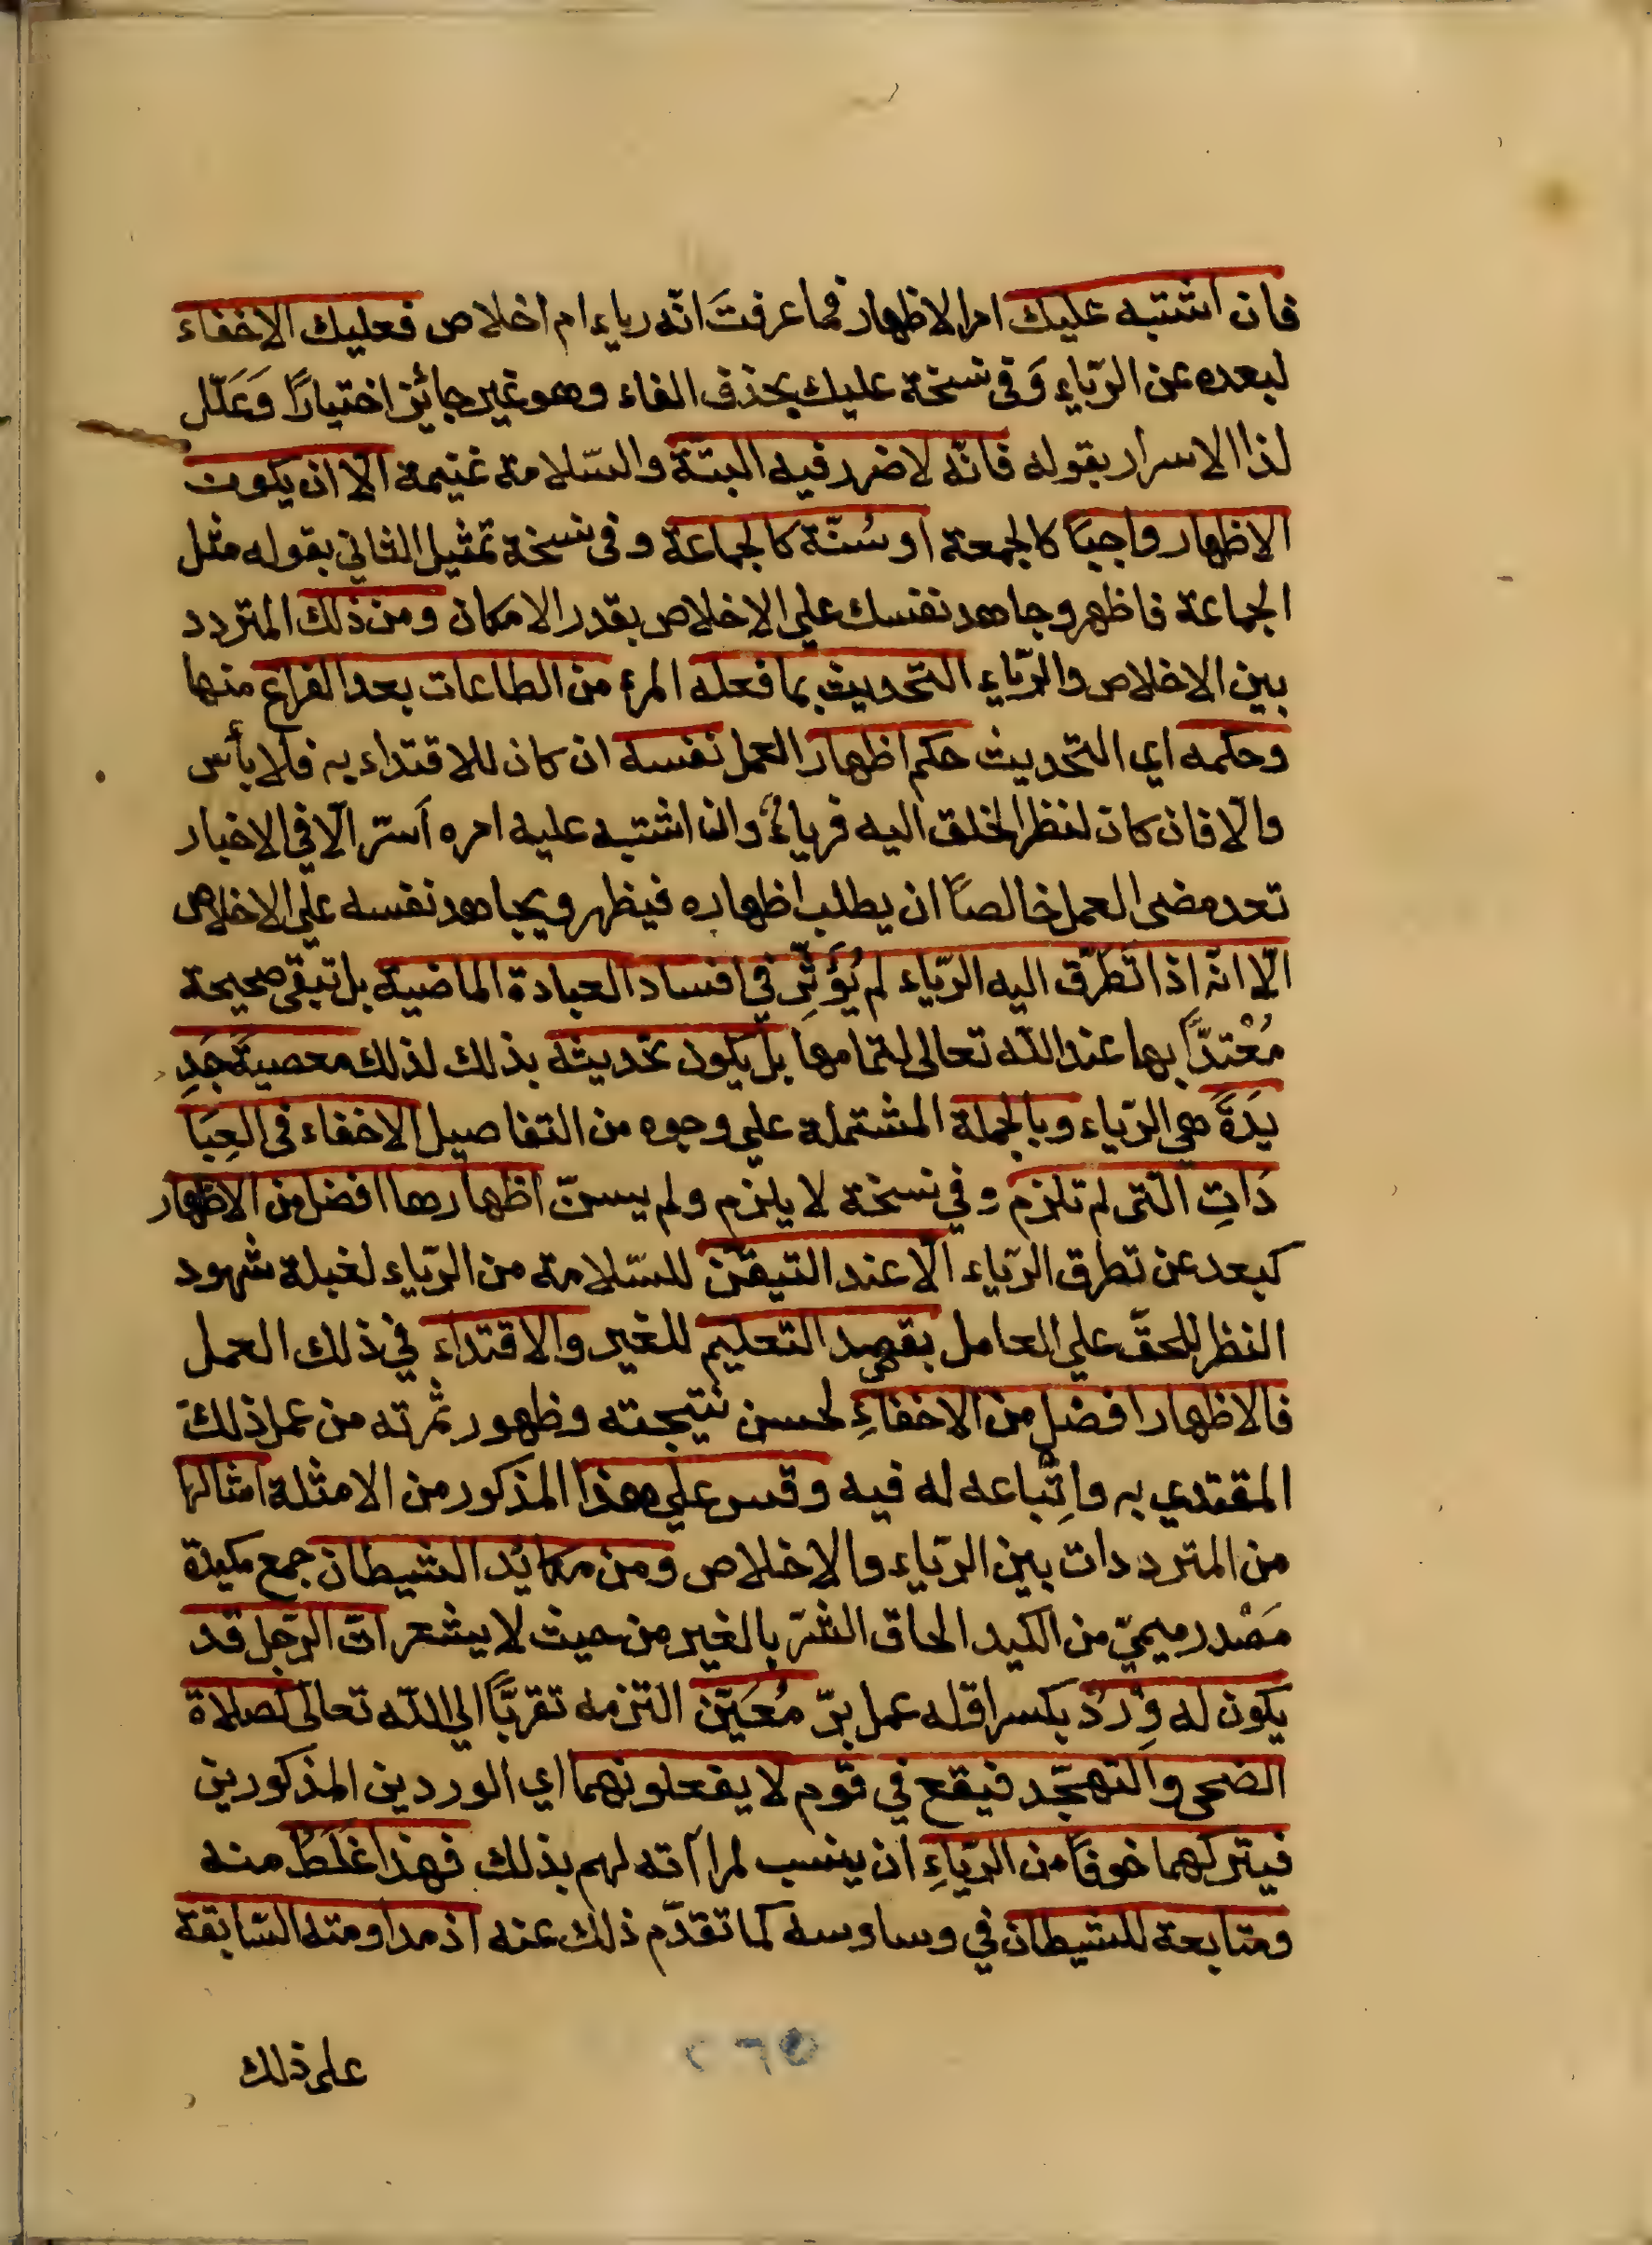 فان اشتبه عليك امر الاظهار فما عرفتَ انّه رياء ام اخلاص فعليك الاخفاء
لبعده عن الريّاء وَفى نسخة عليك بحذف الفاء وهو غير جائز اختيارًا وَعَلّل
لذا الاسرار بقوله فانّه لاضرر فيه البتّة والسّلامة غنيمة الّا ان يكون
الاظهار واجبًا كالجمعة او سُنّة كالجماعة وفى نسخة تمثيل الثاني بقوله مثل
الجماعة فاظهر وجاهد نفسك علي الاخلاص بقدر الامكان ومن ذلك المتردد
بين الاخلاص والريّاء التحديث بما فعله المرء من الطاعات بعد الفراغ منها
وحكمه اي التحديث حكم اظهار العمل نفسه ان كان للاقتداء به فلا بأس
والّا فان كان لنظر الخلق اليه فرياءٌ وان اشتبه عليه امره أستر الّا في الاخبار
تعد مضى العمل خالصًا ان يطلب اظهاره فيظهر ويجاهد نفسه علي الاخلاص
الّا انّه اذا تطرّق اليه الريّاء لم يُؤَثِّر في افساد العبادة الماضية بل تبقى صحيحة
مُعْتدًّا بها عند الله تعالى لتمامها بل يكون تحديثه بذلك لذلك معصيةً جَدِ
يدَةً هى الريّاء وبالجملة المشتملة علي وجوه من التفاصيل الاخفاء فى العِبَا
دَاتِ الّتى لم تلزم وفي نسخة لا يلزم ولم يسنّ اظهارها افضل من الاظهار
كبعد عن تطرق الريّاء الّا عند التيقّن للسّلامة من الريّاء لغبلة شهود
النظر للحقّ علي العامل بقصد التعليم للغير والاقتداء في ذلك العمل
فالاظهار افضل من الاخفاءِ لحسن نتيجته وظهور ثمرته من عمل ذلك
المقتدي به واتِّباعه له فيه وقس علي هذا المذكور من الامثلة امثالها
من المترددات بين الريّاء والاخلاص ومن مكائد الشيطان جمع مكيدة
مَصْدر ميميّ من الكيد الحاق الشرّ بالغير من حيث لا يشعر انّ الرّجل قد
يكون له وِرْدٌ بكسر اقله عمل برّ مُعَيّن التزمه تقربًّا الي الله تعالى كصلاة
الضحى والتهجّد فيقع في قوم لا يفعلونهما اي الوردين المذكورين
فيتركهما خوفًا من الريّاءِ ان ينسب لمراآته لهم بذلك فهذا غَلَطٌ منه
ومتابعة للشيطان في وساوسه كما تقدّم ذلك عنه اذ مداومته السّابقة
على ذلك